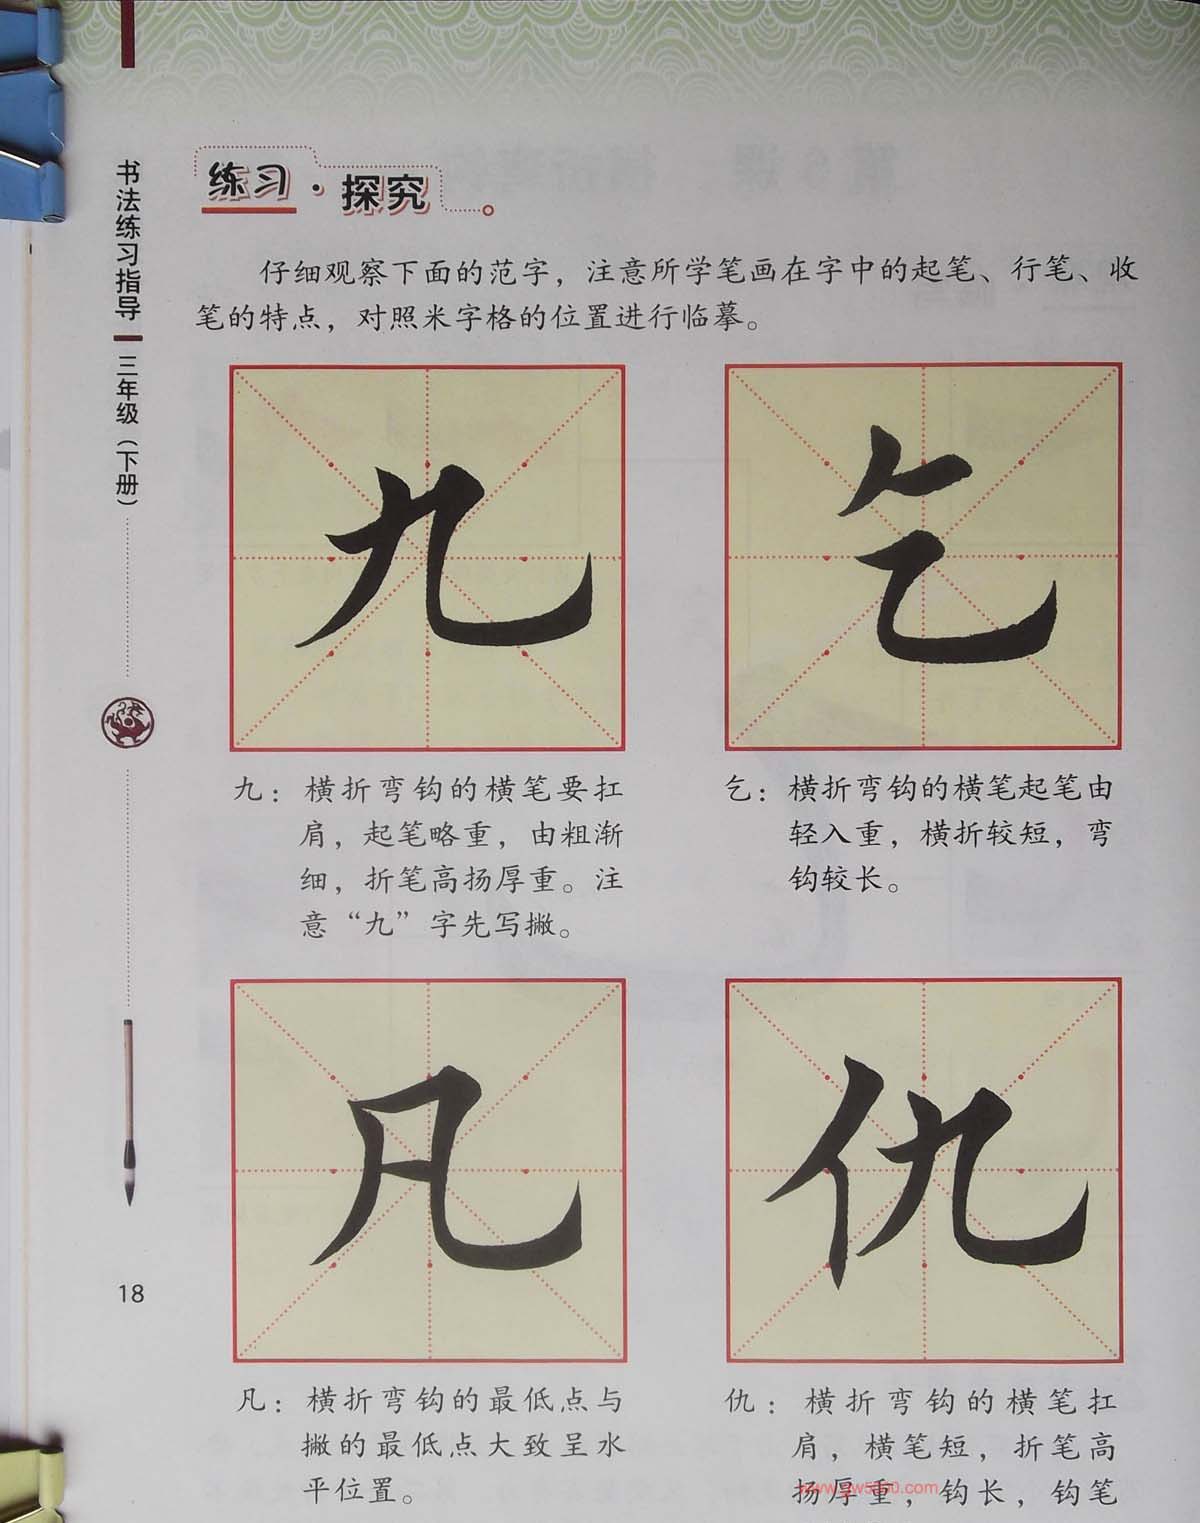 书法练习指导
三年级（下册）
18
练习·探究
仔细观察下面的范字，注意所学笔画在字中的起笔、行笔、收
笔的特点，对照米字格的位置进行临摹。
九
乞
九：横折弯钩的横笔要扛
肩，起笔略重，由粗渐
细，折笔高扬厚重。注
意“九”字先写撇。
乞：横折弯钩的横笔起笔由
轻入重，横折较短，弯
钩较长。
凡
仇
凡：横折弯钩的最低点与
撇的最低点大致呈水
平位置。
仇：横折弯钩的横笔扛
肩，横笔短，折笔高
扬厚重，钩长，钩笔